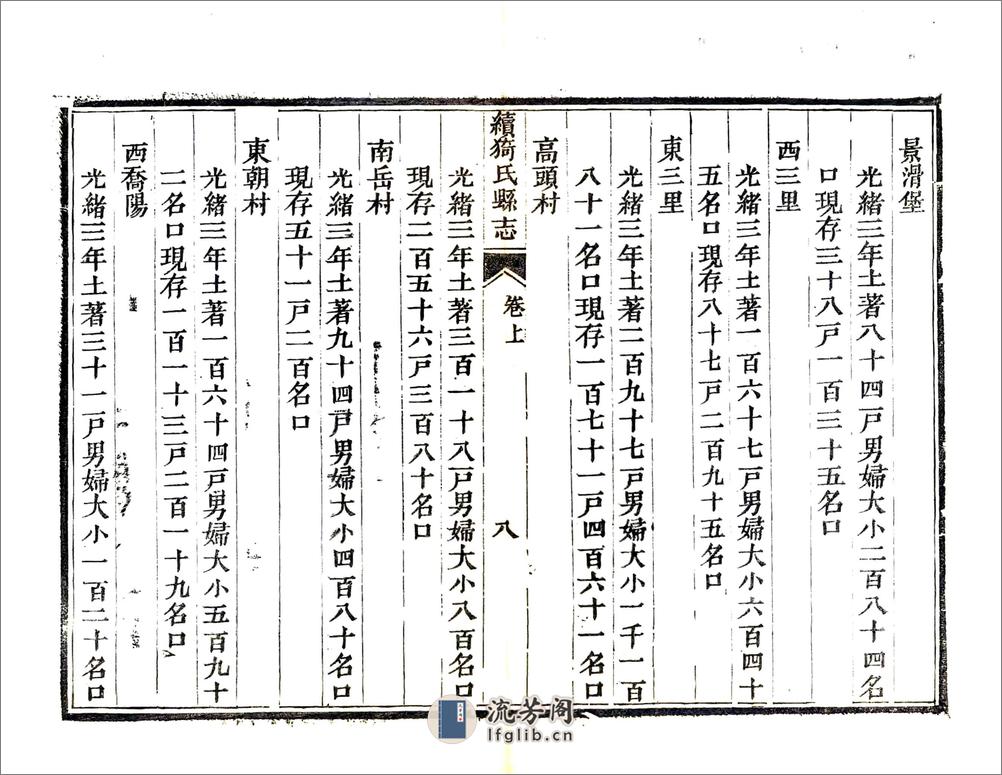 景滑堡
光緒三年土著八十四戸男婦大小二百八十四名
口現存三十八戸一百三十五名口
西三里
光緒三年土著一百六十七戸男婦大小六百四十
五名口現存八十七戸二百九十五名口
東三里
光緒三年土著二百九十七戸男婦大小一千一百
八十一名口現存一百七十一戸四百六十一名口
高頭村
續猗氏縣志 卷上 八
光緒三年土著三百一十八戸男婦大小八百名口
現存二百五十六戸三百八十名口
南岳村
光緒三年土著九十四戸男婦大小四百八十名口
現存五十一戸二百名口
東朝村
光緒三年土著一百六十四戸男婦大小五百九十
二名口現存一百一十三戸二百一十九名口
西喬陽
光緒三年土著三十一戸男婦大小一百二十名口
流芳阁
lfglib.cn